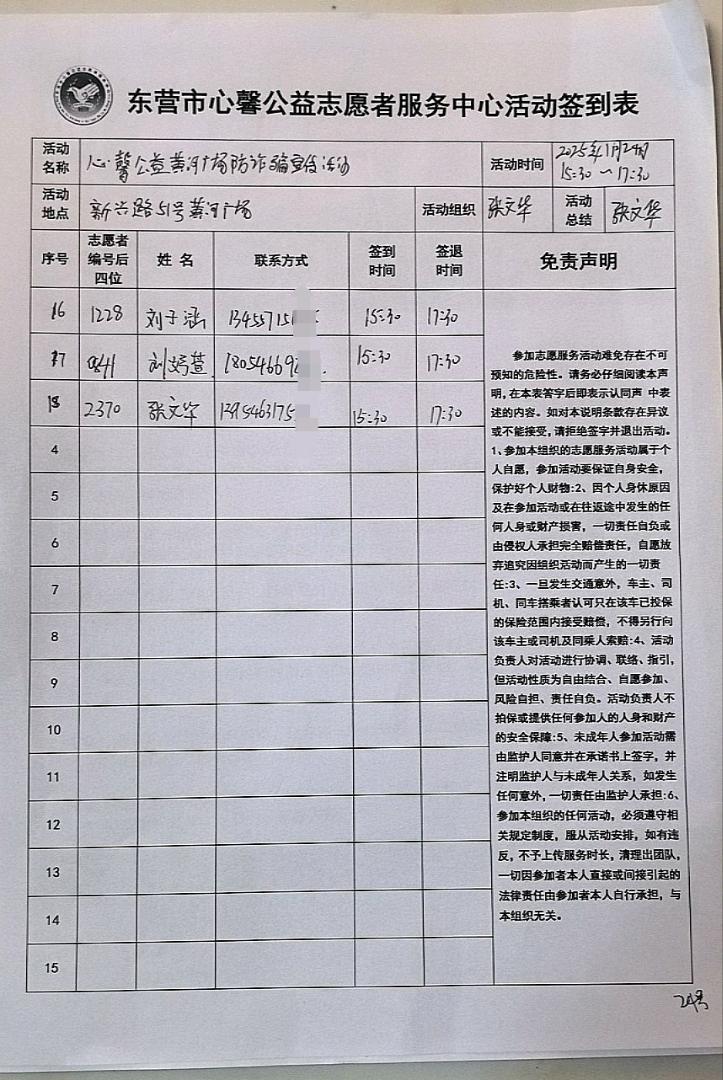 东营市心馨公益志愿者服务中心活动签到表
活动名称 心馨公益黄河广场防诈骗宣传活动 活动时间 2025年1月24日 15:30～17:30
活动地点 新兴路51号黄河广场 活动组织 张文华 活动总结 张文华
序号 志愿者编号后四位 姓名 联系方式 签到时间 签退时间 免责声明
16 1228 刘子涵 13455715 15:30 17:30
17 0841 刘 18054669 15:30 17:30
18 2370 张文华 1395463175 15:30 17:30
4
5
6
7
8
9
10
11
12
13
14
15
参加志愿服务活动难免存在不可
预知的危险性。请务必仔细阅读本声
明,在本表签字后即表示认同声 中表
述的内容。如对本说明条款存在异议
或不能接受,请拒绝签字并退出活动。
1、参加本组织的志愿服务活动属于个
人自愿，参加活动要保证自身安全，
保护好个人财物:2、因个人身体原因
及在参加活动或在往返途中发生的任
何人身或财产损害，一切责任自负或
由侵权人承担完全赔偿责任，自愿放
弃追究因组织活动而产生的一切责
任:3、一旦发生交通意外，车主、司
机、同车搭乘者认可只在该车已投保
的保险范围内接受赔偿，不得另行向
该车主或司机及同乘人索赔:4、活动
负责人对活动进行协调、联络、指引，
但活动性质为自由结合、自愿参加、
风险自担、责任自负。活动负责人不
担保或提供任何参加人的人身和财产
的安全保障:5、未成年人参加活动需
由监护人同意并在承诺书上签字，并
注明监护人与未成年人关系，如发生
任何意外,一切责任由监护人承担:6、
参加本组织的任何活动，必须遵守相
关规定制度，服从活动安排，如有违
反，不予上传服务时长，清理出团队，
一切因参加者本人直接或间接引起的
法律责任由参加者本人自行承担，与
本组织无关。
24号